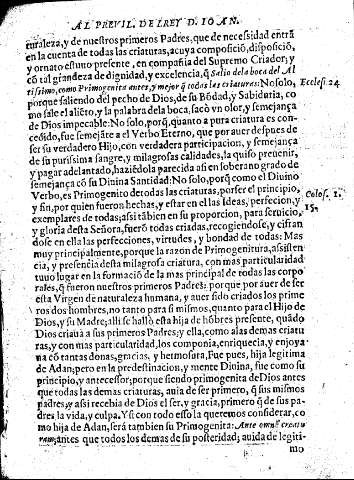 AL PREVIL. DEL REY D. IOAN.
turaleza, y de nuestros primeros Padres, que de necesidad entrã
en la cuenta de todas las criaturas, acuya composiciõ, disposiciõ,
y ornato estuuo presente, en compañia del Supremo Criador; y
cõ tal grandeza de dignidad, y excelencia, q̃ Salio de la boca del Al
tissimo, como Primogenita antes, y mejor q̃ todas las criaturas: No solo, Eccles. 24.
porque saliendo del pecho de Dios, de su Bõdad, y Sabiduria, co
mo sale el aliẽto, y la palabra de la boca, sacò vn olor, y semejança
de Dios impecable: No solo, porq̃, quanto a pura criatura es con-
cedido, fue semejãte a el Verbo Eterno, que por auer despues de
ser su verdadero Hijo, con verdadera participacion, y semejança
de su purissima sangre, y milagrosas calidades, la quiso preuenir,
y pagar adelantado, haziẽdola parecida asi en soberano grado de
semejança cõ su Diuina Santidad: No solo, porq̃ como el Diuino
Verbo, es Primogenito de todas las criaturas, por ser el principio, Colos. 1.
y fin, por quien fueron hechas, y estar en el las Ideas, perfecion, y
exemplares de todas; assi tãbien en su proporcion, para seruicio, 15.
y gloria desta Señora, fuerõ todas criadas, recogiendose, y cifran
dose en ella las perfecciones, virtudes, y bondad de todas: Mas
muy principalmente, porque la razon de Primogenitura, assisten
cia, y presencia desta milagrosa criatura, con mas particularidad
tuuo lugar en la formaciõ de la mas principal de todas las corpo
rales, q̃ fueron nuestros primeros Padres: porque por auer de ser
esta Virgen de naturaleza humana, y auer sido criados los prime
ros dos hombres, no tanto para si mismos, quanto para el Hijo de
Dios, y su Madre; alli se hallò esta hija de hõbres presente, quãdo
Dios criaua a sus primeros Padres; y ella, como a las demas criatu
ras, y con mas particularidad, los componia, enriquecia, y enjoya
na cõ tantas donas, gracias, y hermosura, Fue pues, hija legitima
de Adan; pero en la predestinacion, y mente Diuina, fue como su
principio, y antecessor; porque siendo primogenita de Dios antes
que todas las demas criaturas, auia de ser primero, q̃ sus mismos
padres, y assi recebia de Dios el ser, y gracia, primero q̃ de sus pa-
dres la vida, y culpa. Y si con todo esso la queremos considerar, co
mo hija de Adan, serà tambien su Primogenita: Ante omnẽ creatu
ram, antes que todos los demas de su posteridad; auida de legiti-
mo